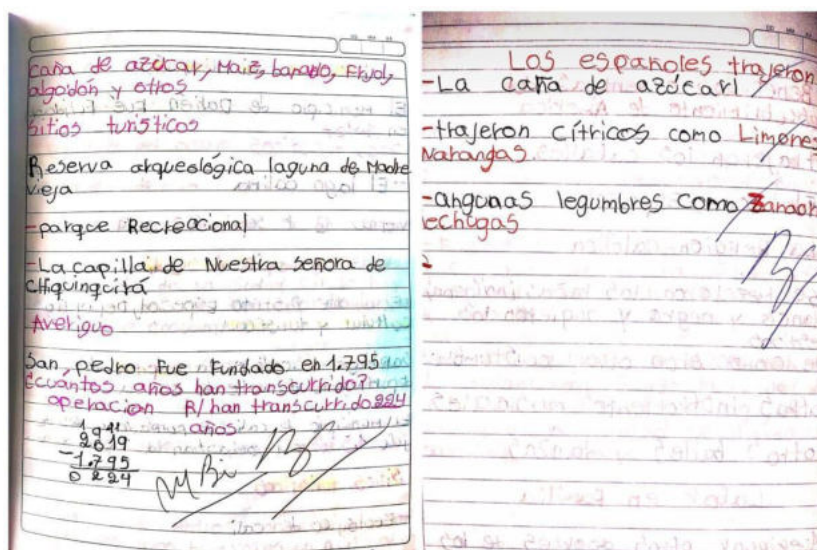 Caña de azúcar, Maíz, banano, Frijol,
algodón y otros
Sitios turísticos
Reserva arqueológica laguna de Madre
vieja
-parque Recreacional
-La capilla de Nuestra señora de
Chiquinquirá
Averiguo
San pedro Fue Fundado en 1.795
¿cuántos años han transcurrido?
operacion R/han transcurrido 224
años
2019
-1.795
0224
Los españoles trajeron
-La caña de azúcar
-trajeron cítricos como Limones
Narangas
-angunas legumbres como
echugas